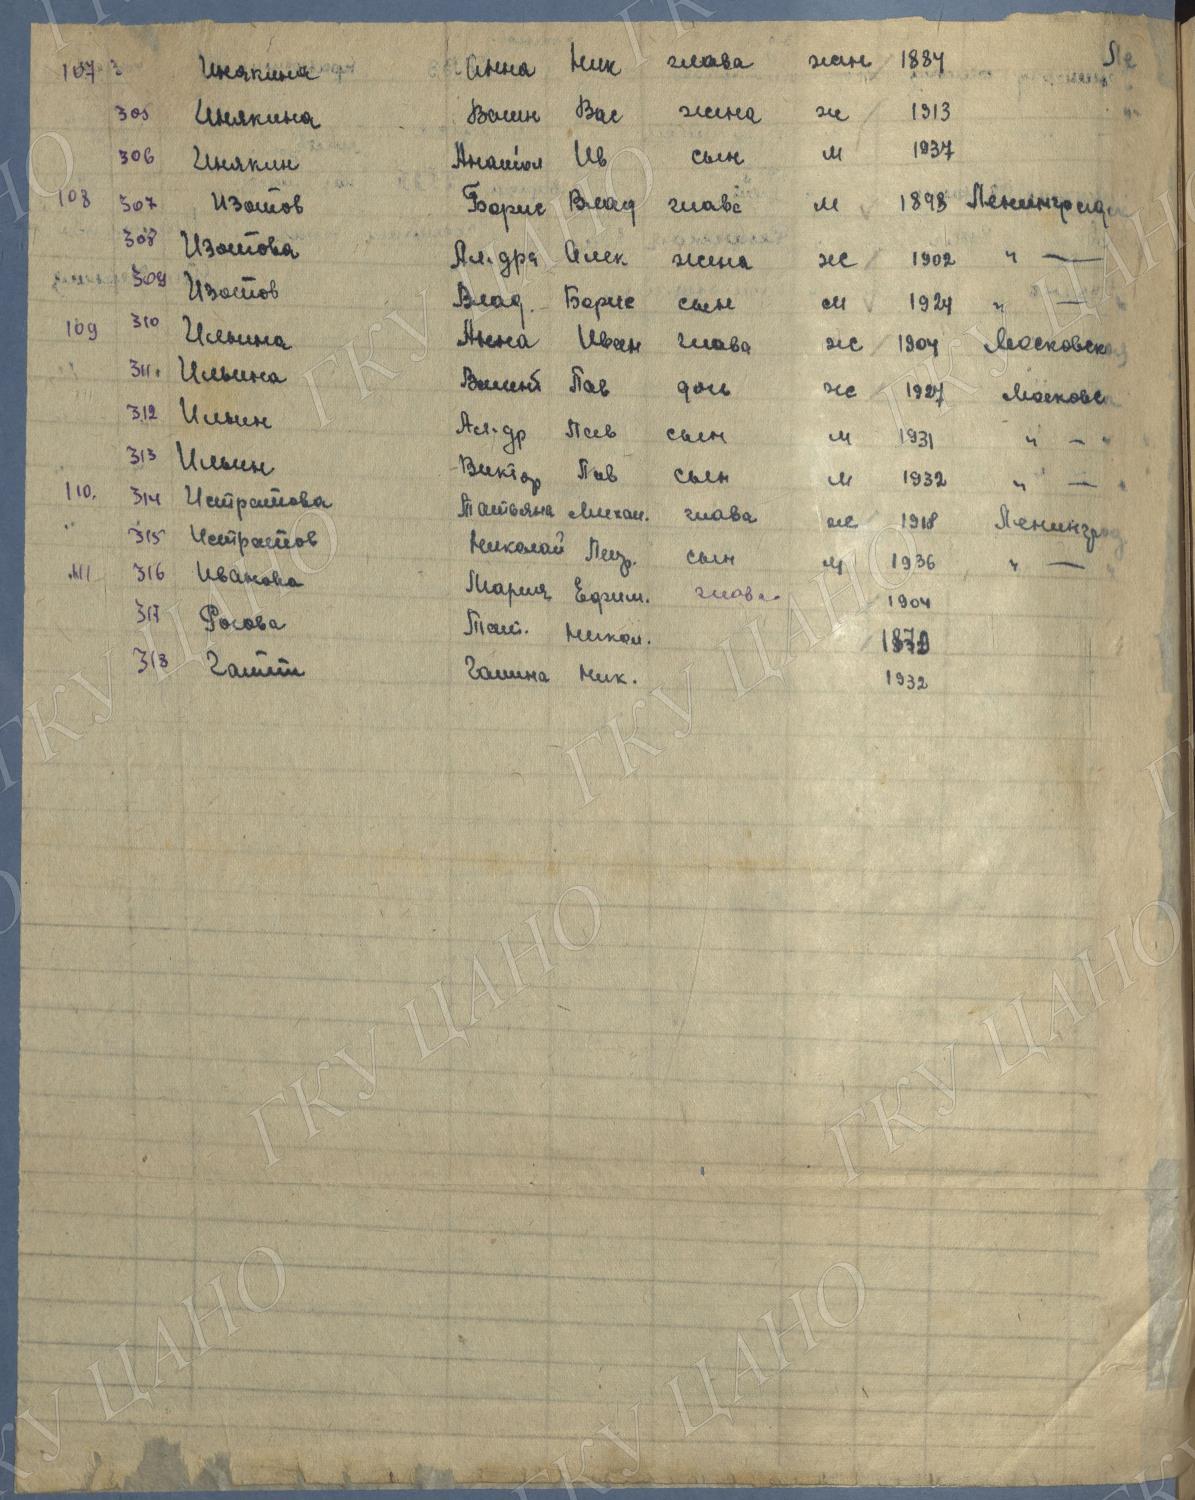 107 3 Инякина Анна Ник глава жен 1884 Ле
305 Инякина Вас жена ж 1913 "
306 Инякин Анатол Ив сын м 1937
108 307 Изотов Борис Влад глава м 1898 Ленинград
308 Изотова Ал-дра Алек жена ж 1902 " —
309 Изотов Влад. Борис сын м 1924 " —
109 310 Ильина Анна Иван глава ж 1904 Московск
311. Ильина Валент Пав дочь ж 1927 Московс
312 Ильин Ал-др Пав сын м 1931 " — "
313 Ильин Виктор Пав сын м 1932 " — "
110. 314 Истратова Татьяна Михаил. глава ж 1918 Ленинград
" 315 Истратов Николай Петр. сын м 1936 " — "
111 316 Иванова Мария Ефим. глава 1904
317 Росова Тат. Никол.
318 Галина Ник. 1932
ГКУ ЦАНО